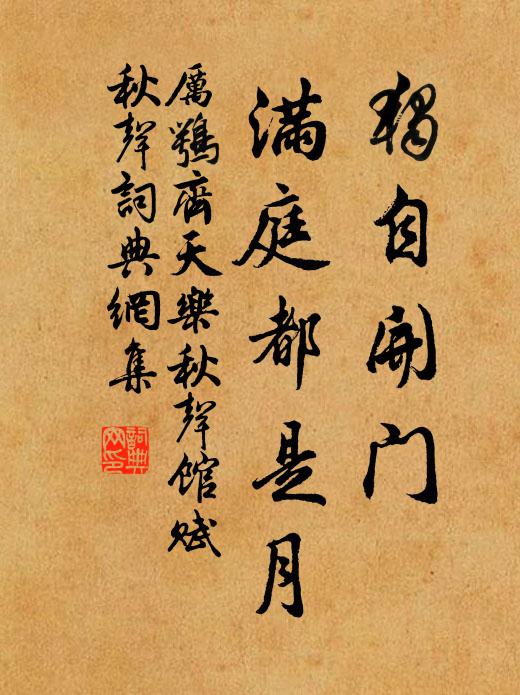 獨自開门
滿庭都是月
厲鶚齊天樂秋聲館賦
秋聲詞典網集
詞典
网印